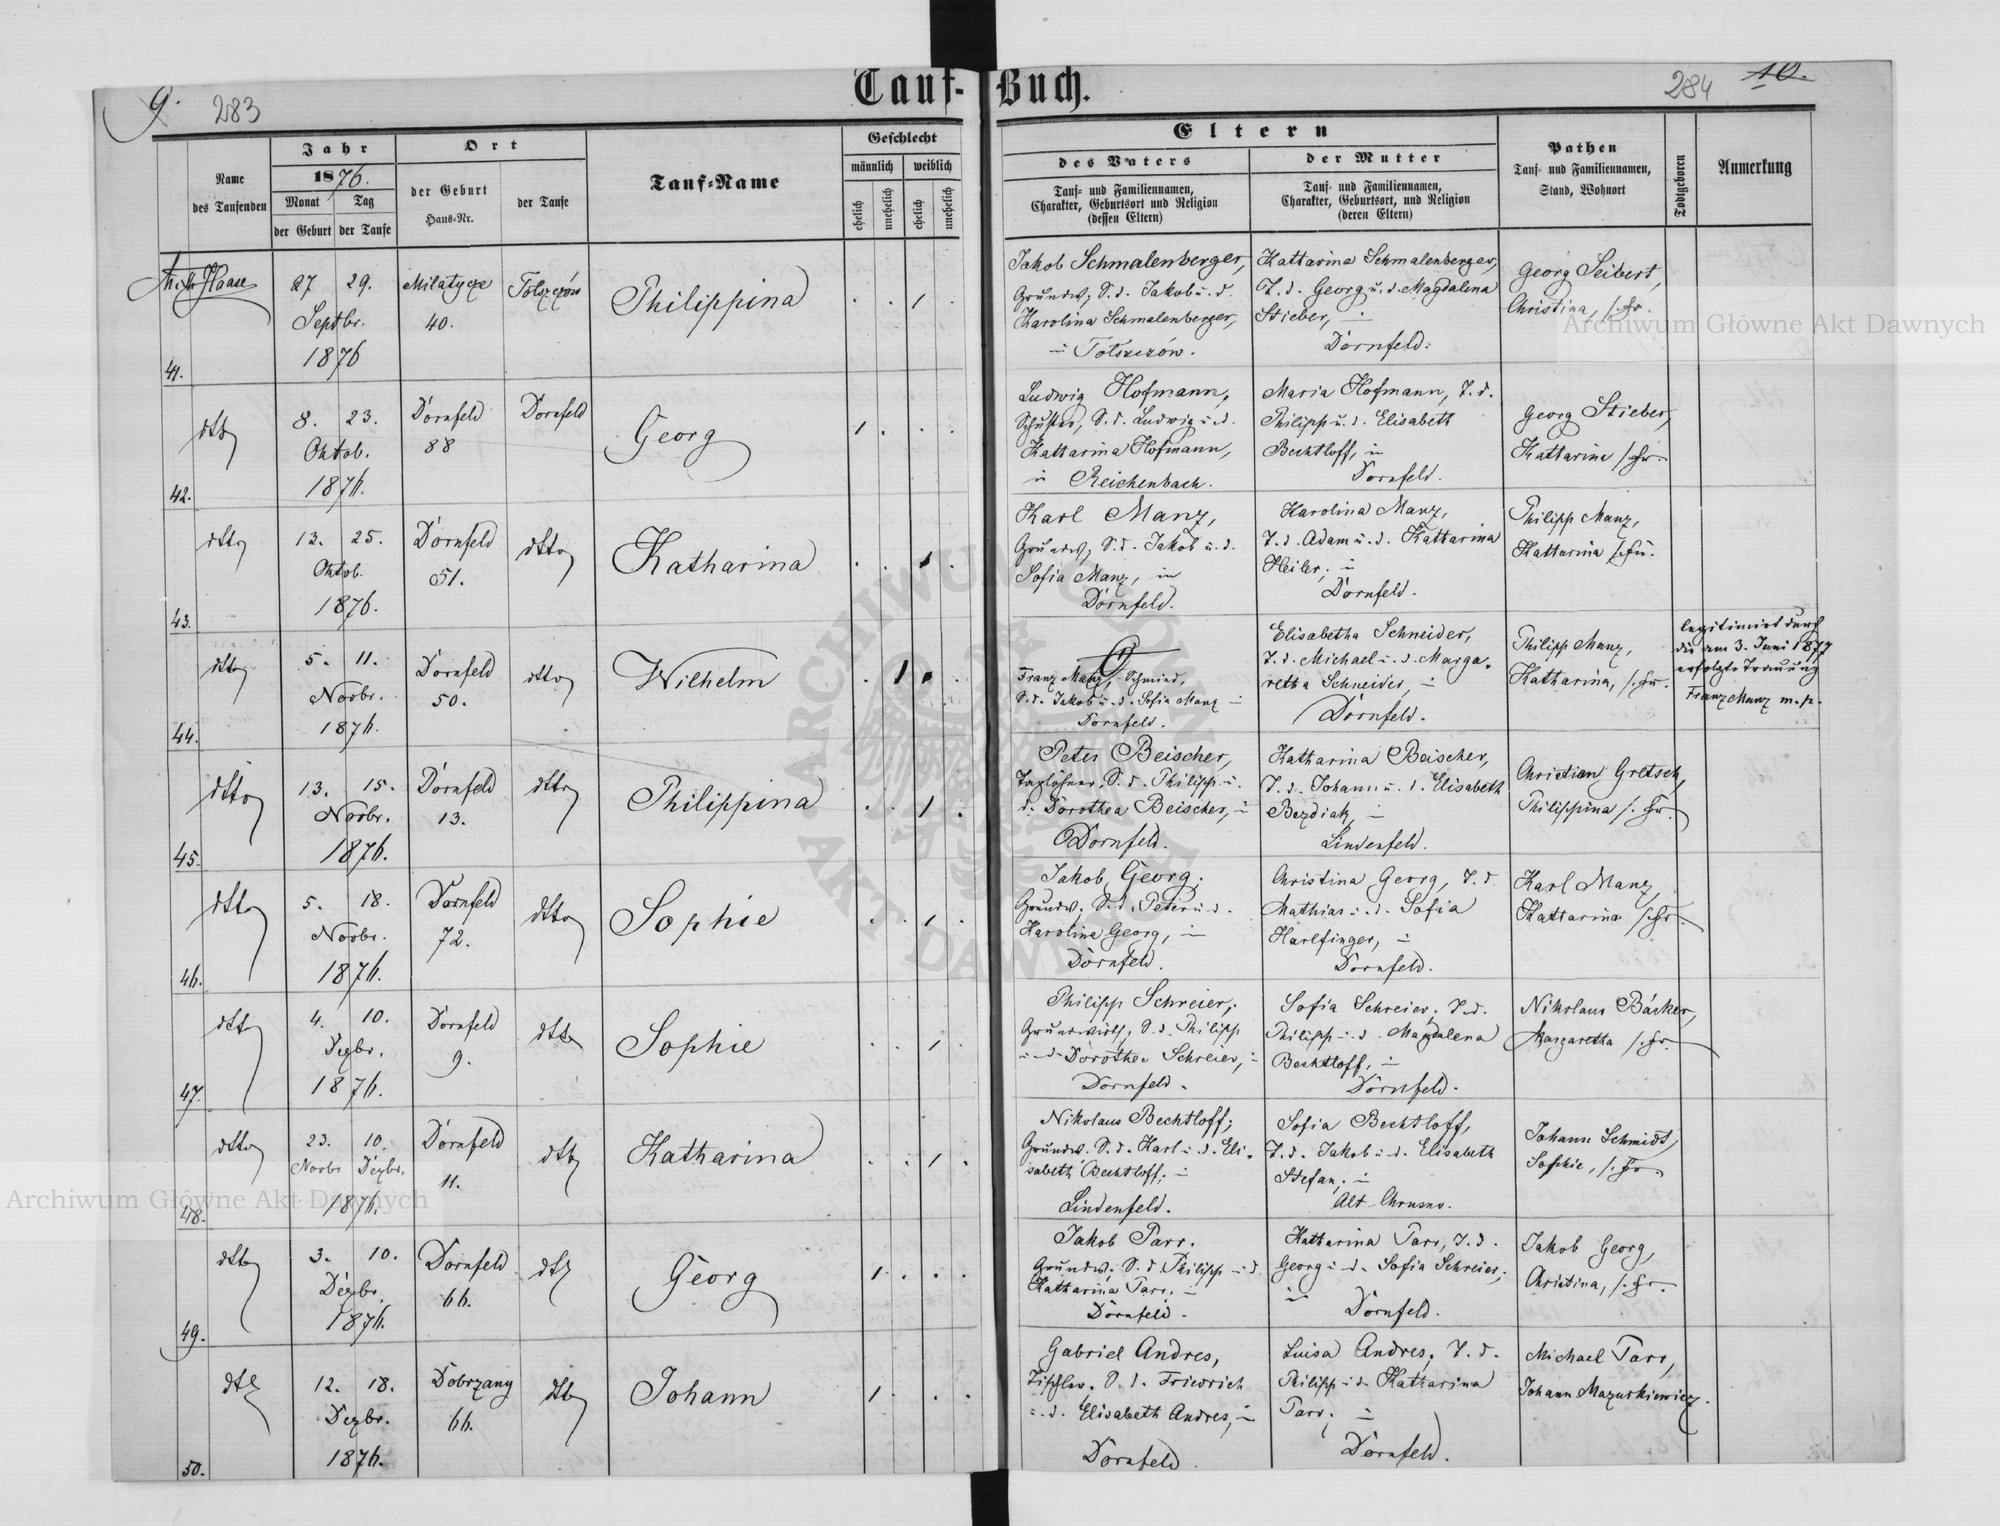 Tauf-Buch.
9.
283
284
10.
Name
des Taufenden
Jahr
1876.
Monat
Tag
der Geburt
der Taufe
Ort
der Geburt
Haus-Nr.
der Taufe
Tauf-Name
Geschlecht
männlich
weiblich
ehelich
unehelich
ehelich
unehelich
Eltern
des Vaters
Tauf- und Familiennamen,
Charakter, Geburtsort und Religion
(dessen Eltern)
der Mutter
Tauf- und Familiennamen,
Charakter, Geburtsort, und Religion
(deren Eltern)
Pathen
Tauf- und Familiennamen,
Stand, Wohnort
Todtgeboren
Anmerkung
41.
27 29.
Septbr.
1876
Milatycze
40.
Tolszczów
Philippina
Jakob Schmalenberger,
Grundw, S. d. Jakob u. d.
Karolina Schmalenberger,
Tolszczów.
Kattarina Schmalenberger,
T. d. Georg u. d. Magdalena
Stieber,
Dornfeld.
Georg Seibert,
Christina,
42.
dtto
8. 23.
Oktob.
1876.
Dornfeld
88
Dornfeld
Georg
Ludwig Hofmann,
Schuster, S. d. Ludwig u. d.
Kattarina Hofmann,
in Reichenbach.
Maria Hofmann, T. d.
Philipp u. d. Elisabeth
Bechtloff, in
Dornfeld.
Georg Stieber,
Kattarine
43.
dtto
13. 25.
Oktob.
1876.
Dornfeld
51.
dtto
Katharina
Karl Manz,
Grundw, S. d. Jakob u. d.
Sofia Manz, in
Dornfeld.
Karolina Manz,
T. d. Adam u. d. Katharina
Heiler,
Dornfeld.
Philipp Manz,
Kattarina
44.
dtto
5. 11.
Novbr.
1876.
Dornfeld
50.
dtto
Wilhelm
Franz Manz, Schmied,
S. d. Jakob u. d. Sofia Manz
Dornfeld.
Elisabetha Schneider,
T. d. Michael u. d. Marga-
retha Schneider,
Dornfeld.
Philipp Manz,
Katharina,
legitimirt durch
die am 3. Juni 1877
erfolgte Trauung
Franz Manz m. p.
45.
dtto
13. 15.
Novbr.
1876.
Dornfeld
13.
dtto
Philippina
Peter Beischer,
Taglöhner, S. d. Philipp u.
d. Dorothea Beischer,
Dornfeld.
Katharina Beischer,
T. d. Johann u. d. Elisabeth
Bezdiak,
Lindenfeld.
Christian Gretsch,
Philippina
46.
dtto
5. 18.
Novbr.
1876.
Dornfeld
72.
dtto
Sophie
Jakob Georg,
Grundw. S. d. Peter u. d.
Karolina Georg,
Dornfeld.
Christina Georg, T. d.
Mathias u. d. Sofia
Harlfinger,
Dornfeld.
Karl Manz,
Kattarina
47.
dtto
4. 10.
Dezbr.
1876.
Dornfeld
9.
dtto
Sophie
Philipp Schreier,
Grundwirth, S. d. Philipp
u. d. Dorothea Schreier,
Dornfeld.
Sofia Schreier, T. d.
Philipp u. d. Magdalena
Bechtloff,
Dornfeld.
Nikolaus Bäcker,
Margaretha
48.
dtto
23. 10.
Novbr Dezbr.
1876.
Dornfeld
11.
dtto
Katharina
Nikolaus Bechtloff;
Grundw. S. d. Karl u. d. Eli-
sabeth Bechtloff,
Lindenfeld.
Sofia Bechtloff,
T. d. Jakob u. d. Elisabeth
Stefan,
Alt Chrusno.
Johann Schmidt,
Sophie,
49.
dtto
3. 10.
Dezbr.
1876.
Dornfeld
66.
Georg
Jakob Parr.
Grundw. S. d. Philipp u. d.
Katharina Parr,
Dornfeld.
Katharina Parr, T. d.
Georg u. d. Sofia Schreier,
Dornfeld.
Jakob Georg,
Christina,
50.
12. 18.
Dezbr.
1876.
Dobrzany
66.
dtto
Johann
Gabriel Andres,
Tischler, S. d. Friedrich
u. d. Elisabeth Andres,
Dornfeld.
Luisa Andres, T. d.
Philipp u. d. Katharina
Parr,
Dornfeld.
Michael Parr,
Johann Mazurkiewicz.
Archiwum Główne Akt Dawnych
Archiwum Główne Akt Dawnych
ARCHIWUM GŁÓWNE
AKT DAWNYCH